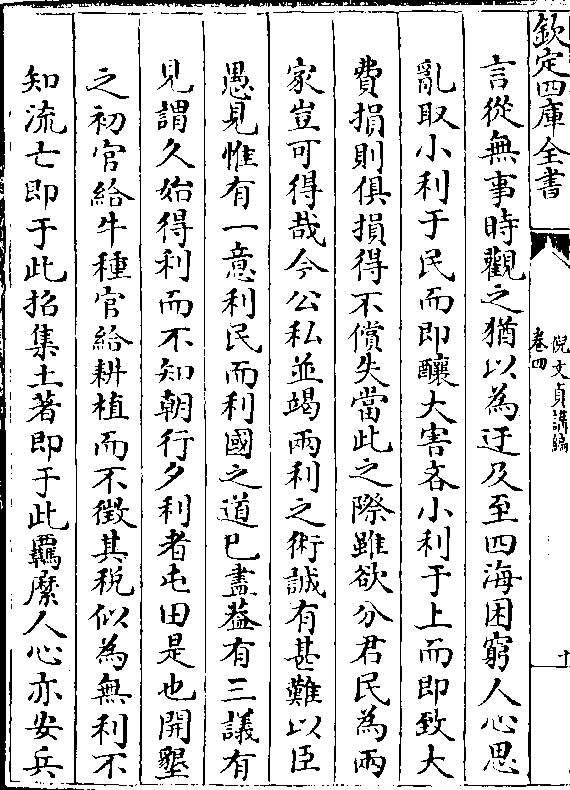 欽定四庫全書
倪文貞講編
卷四
言從無事時觀之猶以為迂及至四海困窮人心思
亂取小利于民而即釀大害吝小利于上而即致大
費損則俱損得不償失當此之際雖欲分君民為兩
家豈可得哉今公私並竭兩利之術誠有甚難以臣
愚見惟有一意利民而利國之道已盡葢有三議有
見謂久始得利而不知朝行夕利者屯田是也開墾
之初官給牛種官給耕植而不徵其稅似為無利不
知流亡即于此招集土著即于此羈縻人心亦安兵